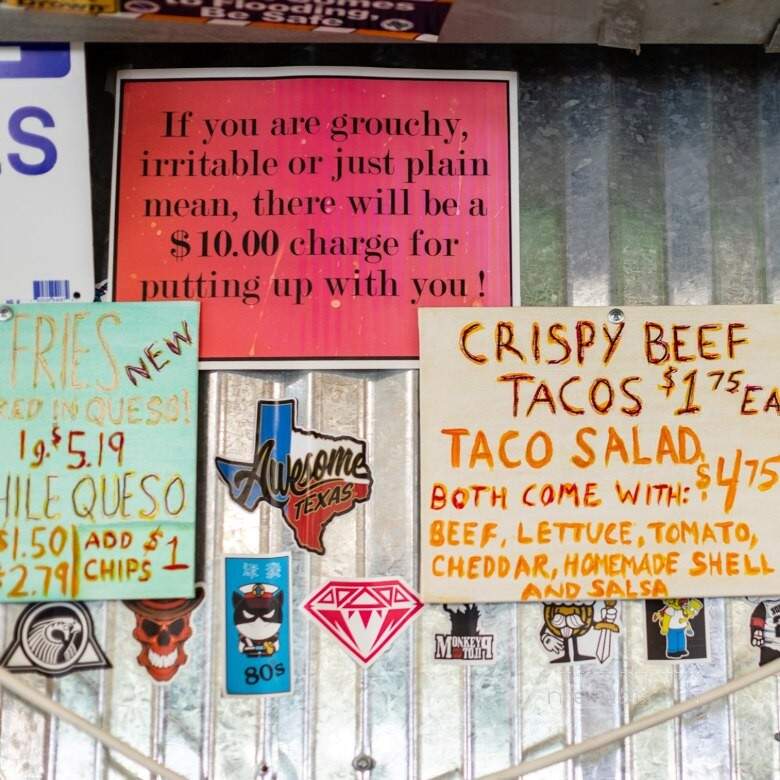 to Flooding,
Be Safe
S
If you are grouchy,
irritable or just plain
mean, there will be a
$10.00 charge for
putting up with you !
FRIES
NEW
RED IN QUESO!
lg. $5.19
HILE QUESO
$1.50
$2.79
ADD $1
CHIPS
CRISPY BEEF
TACOS $1.75 EA
TACO SALAD $4.75
BOTH COME WITH:
BEEF, LETTUCE, TOMATO,
CHEDDAR, HOMEMADE SHELL
AND SALSA
Awesome
TEXAS
80s
MONKEY